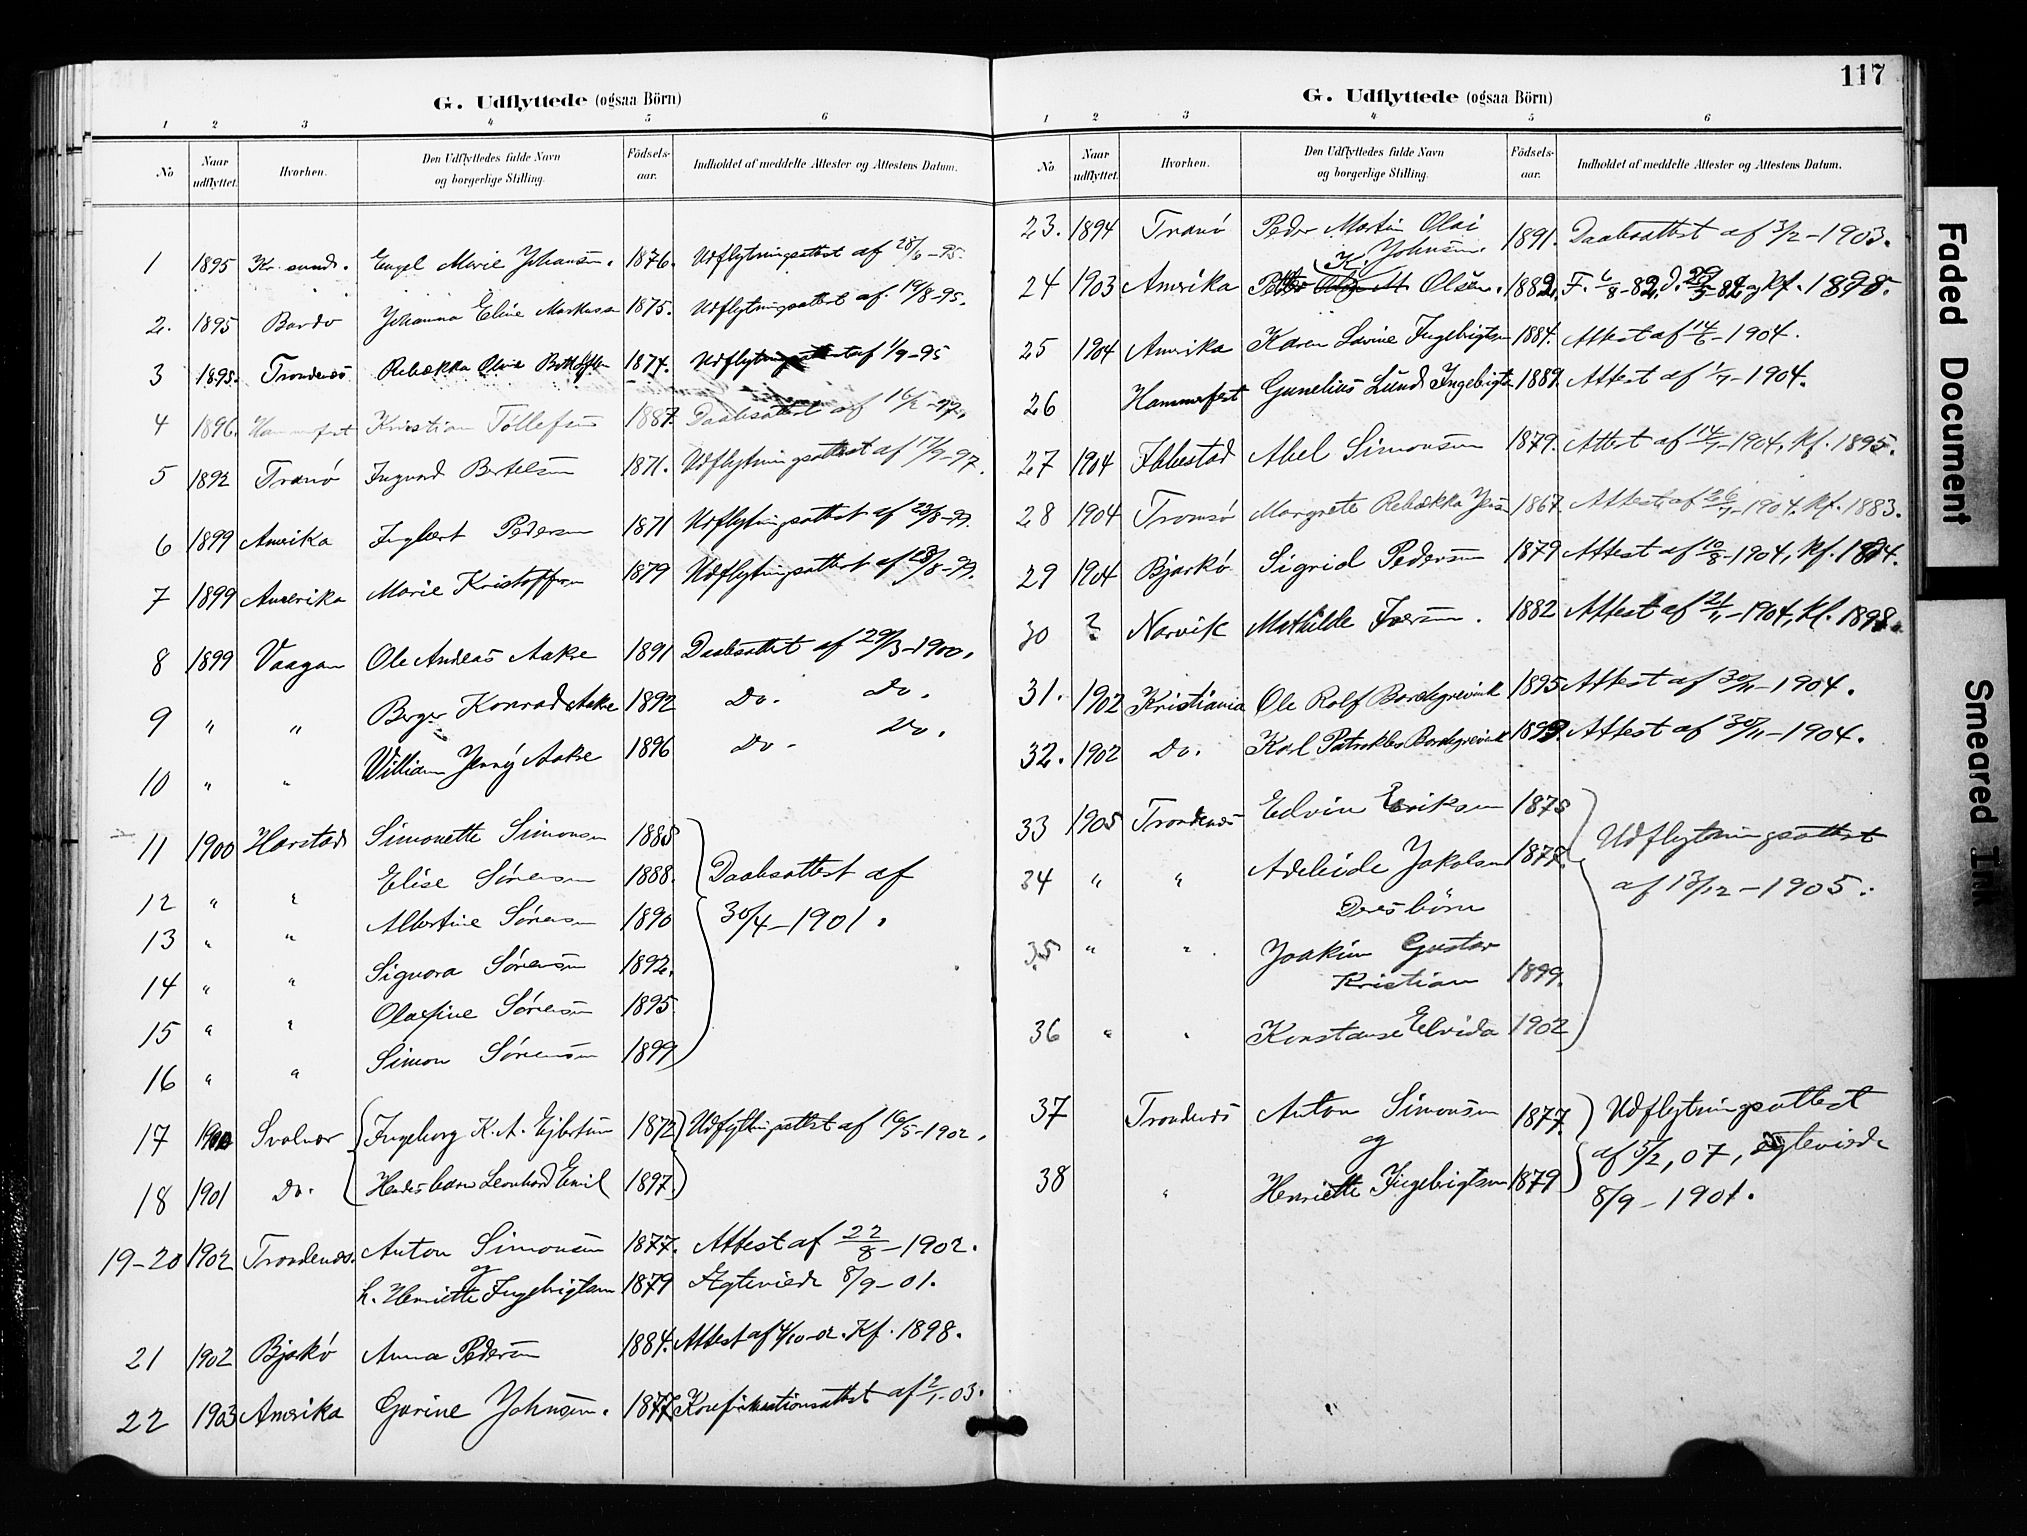 G. Udflyttede (ogsaa Börn)
1 2 3 4 5 6
No Naar udflyttet. Hvorhen. Den Udflyttedes fulde Navn og borgerlige Stilling. Födsels-aar. Indholdet af meddelte Attester og Attestens Datum.
1 1895 Kr. sund. Engel Marie Johansen. 1876. Udflytningsattest af 28/6-95.
2. 1895 Bardo Johanna Eline Markussen 1875. Udflytningsattest af 19/8-95.
3 1895. Trondenæs Rebækka Oline 1874. Udflytningsattest af 1/9-95
4 1896. Hammerfest Kristian Tollefsen 1887. Daabsattest af 16/2-97.
5 1892 Tranö Ingvard Bertelsen 1871. Udflytningsattest af 17/9-97.
6 1899 Amerika Ingbert Pedersen 1871 Udflytningsattest af 28/8-99.
7 1899 Amerika Marie Kristoffersen 1879 Udflytningsattest af 28/8-99.
8 1899 Vaagan Ole Andreas Aakre 1891 Daabsattest af 29/3-1900.
9 " " Berger Konrad Aakre 1892 Do. Do.
10 " " William Jenny Aakre 1896 Do. Do.
11 1900 Harstad Simonette Simonsen 1885
12 " " Elise Sörensen 1888. Daabsattest af
13 " " Albertine Sörensen 1890 30/4-1901.
14 " " Signora Sörensen 1892.
15 " " Olafine Sörensen 1895
16 " " Simon Sörensen 1899
17 Svolvær Ingeborg K. A. Ejbertsen 1872 Udflytningsattest af 16/5-1902.
18 1901 Do. Hendes barn Leonhard Emil 1897
19-20 1902 Trondenæs. Anton Simonsen 1877. Attest af 22/8-1902.
og
h. Henriette Ingebrigtsen 1879 Ægteviede 8/9-01.
21 1902 Bjarkö Anna Pedersen 1884. Attest af 4/10-02. Kf. 1898.
22 1903 Amerika Gorine Johnsen. 1877 Konfirmationsattest af 2/1-03.
117
G. Udflyttede (ogsaa Börn)
1 2 3 4 5 6
No. Naar udflyttet. Hvorhen. Den Udflyttedes fulde Navn og borgerlige Stilling. Födsels-aar. Indholdet af meddelte Attester og Attestens Datum.
23. 1894 Tranö Peder Martin Olai
K. Johnsen. 1891. Daabsattest af 3/2-1903.
24 1903 Amerika Olsen. 1882. F. 6/8-82. d. og kf. 1898.
25 1904 Amerika Karen Lovine Ingebrigtsen 1884. Attest af 14/6-1904.
26 Hammerfest Gunelius Lund Ingebrigtsen 1889. Attest af 1/7-1904.
27 1904 Ibbestad Abel Simonsen 1879. Attest af 14/7-1904, kf. 1895.
28 1904 Tromsö Margrete Rebækka Jensen 1867. Attest af 26/7-1904. kf. 1883.
29 1904 Bjarkö Sigrid Pedersen 1879 Attest af 10/8-1904, kf. 1894.
30 ? Narvik Mathilde Iversen. 1882 Attest af 21/11-1904, kf. 1898.
31. 1902 Kristiania Ole Rolf Borchgrevink 1895 Attest af 30/11-1904.
32. 1902 Do. Karl Patroklos Borchgrevink 1899. Attest af 30/11-1904.
33 1905 Trondenæs Edvin Eriksen 1875
Udflytningsattest
34 " " Adeleide Jakobsen 1877.
af 13/12-1905.
Deres börn
35 " " Joakim Gustav
Kristian 1899.
36 " " Konstanse Elvida 1902
37 Trondenæs Anton Simonsen 1877. Udflytningsattest
og af 5/2, 07, ægteviede
38 " Henriette Ingebrigtsen 1879 8/9-1901.
Faded Document
Smeared Ink